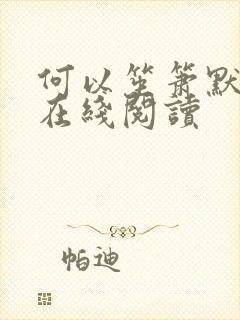 何以笙箫默
在綫閱讀
帕迪